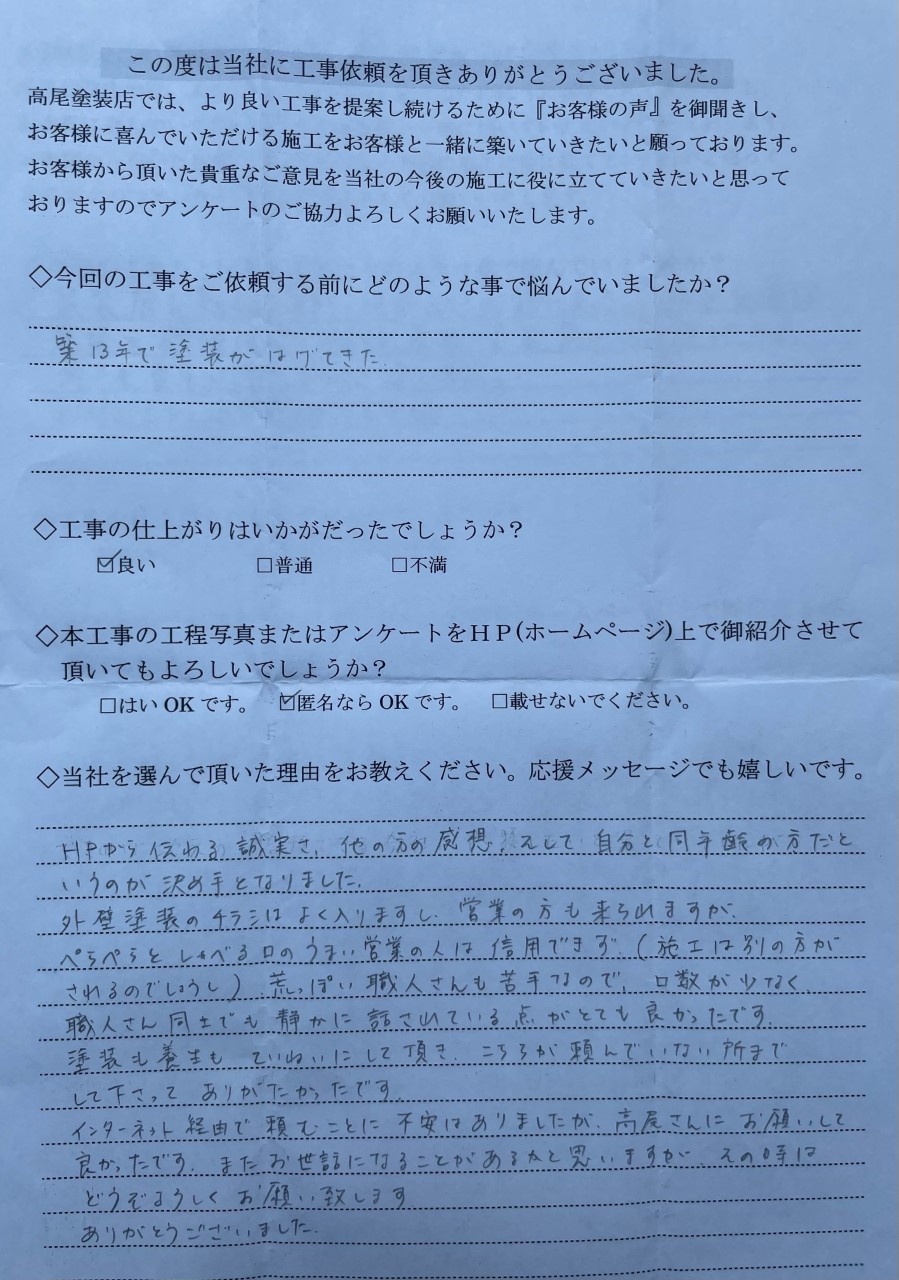 この度は当社に工事依頼を頂きありがとうございました。
高尾塗装店では、より良い工事を提案し続けるために『お客様の声』を御聞きし、
お客様に喜んでいただける施工をお客様と一緒に築いていきたいと願っております。
お客様から頂いた貴重なご意見を当社の今後の施工に役に立てていきたいと思って
おりますのでアンケートのご協力よろしくお願いいたします。
◇今回の工事をご依頼する前にどのような事で悩んでいましたか？
築13年で塗装がはげてきた.
◇工事の仕上がりはいかがだったでしょうか？
☑良い　□普通　□不満
◇本工事の工程写真またはアンケートをＨＰ(ホームページ)上で御紹介させて
頂いてもよろしいでしょうか？
□はい OK です。　☑匿名なら OK です。　□載せないでください。
◇当社を選んで頂いた理由をお教えください。応援メッセージでも嬉しいです。
HPから伝わる誠実さ、他の方の感想、そして自分と同年齢の方だと
いうのが決め手となりました.
外壁塗装のチラシはよく入りますし、営業の方も来られますが、
ぺらぺらとしゃべる口のうまい営業の人は信用できず、(施工は別の方が
されるのでしょうし) 荒っぽい職人さんも苦手なので、口数が少なく
職人さん同士でも静かに話されている点がとても良かったです.
塗装も養生もていねいにして頂き、こちらが頼んでいない所まで
して下さってありがたかったです.
インターネット経由で頼むことに不安はありましたが、高尾さんにお願いして
良かったです. またお世話になることがあるかと思いますが、その時は
どうぞよろしくお願い致します
ありがとうございました.